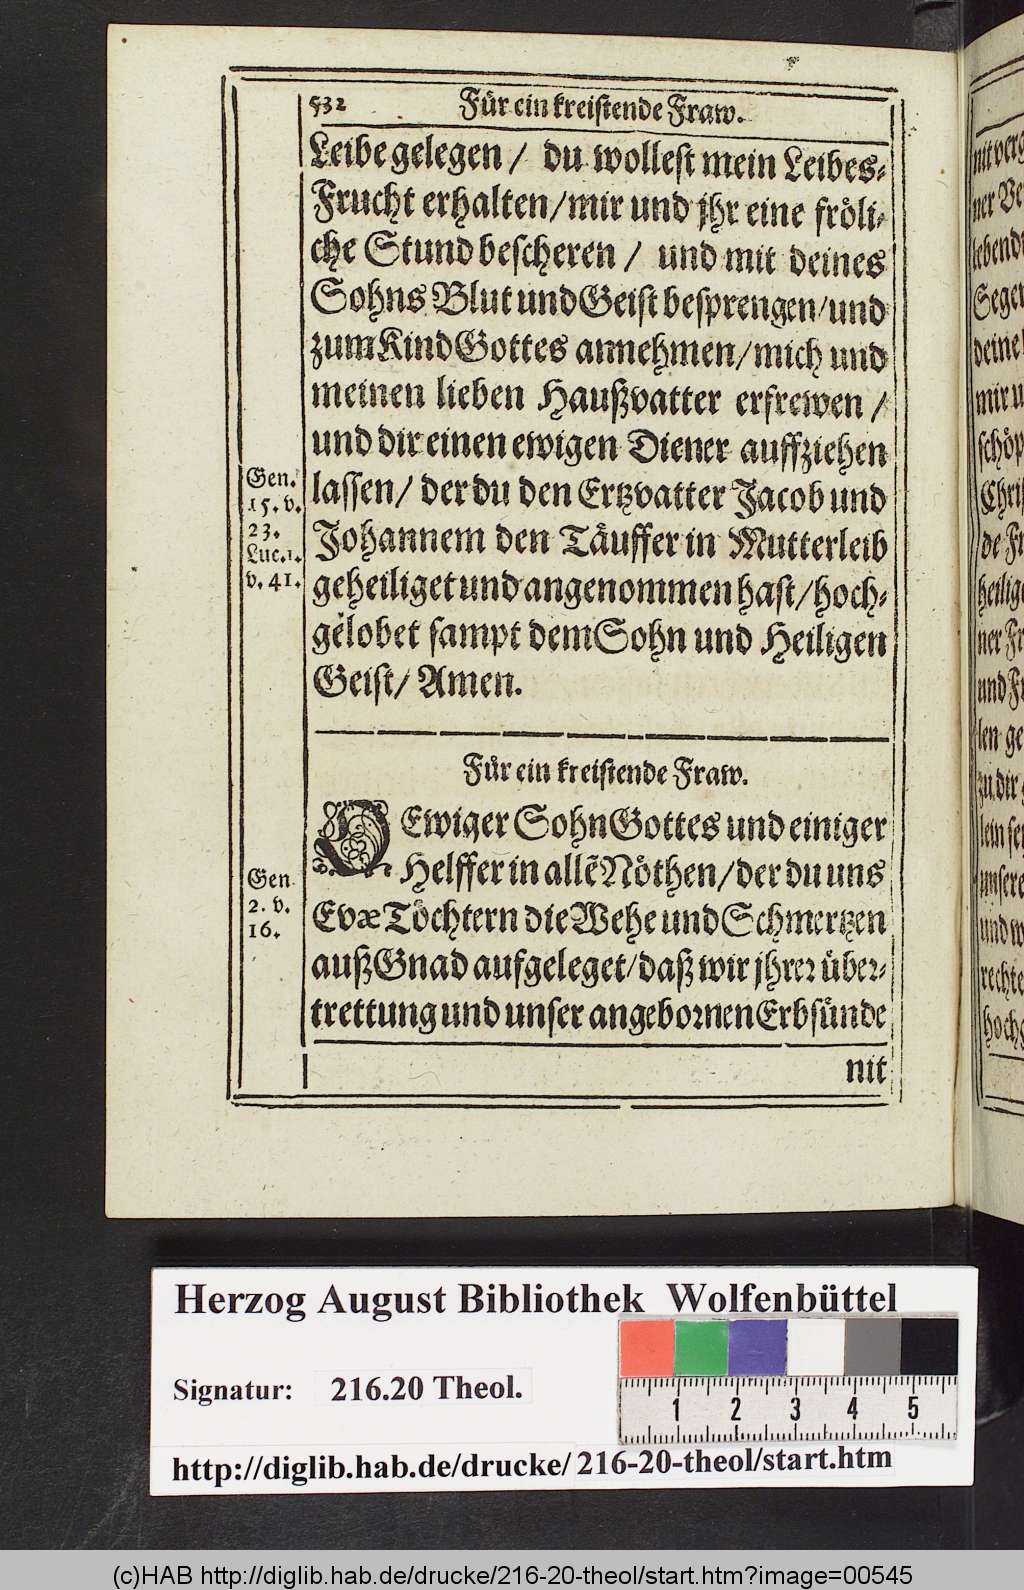 532 Für ein kreistende Fraw.
Leibe gelegen / du wollest mein Leibes-
Frucht erhalten/mir und jhr eine fröli-
che Stund bescheren / und mit deines
Sohns Blut und Geist besprengen/und
zum Kind Gottes annehmen/mich und
meinen lieben Haußvatter erfrewen /
und dir einen ewigen Diener auffziehen
lassen/ der du den Ertzvatter Jacob und
Johannem den Täuffer in Mutterleib
geheiliget und angenommen hast/hoch-
gelobet sampt dem Sohn und Heiligen
Geist/ Amen.
Gen.
15. v.
23.
Luc. 1.
v. 41.
Für ein kreistende Fraw.
O Ewiger Sohn Gottes und einiger
Helffer in allẽ Nöthen/der du uns
Evæ Töchtern die Wehe und Schmertzen
auß Gnad aufgeleget/daß wir jhrer über-
trettung und unser angebornen Erbsünde
Gen
2. v.
16.
nit
nit verg
ner Ve
lebend
Segen
deine
mir u
schöp
Chri
de Fr
heilig
ner Fr
und Fr
len ge
zu dir
lein se
unsere
und w
rechte
hochg
Herzog August Bibliothek Wolfenbüttel
Signatur: 216.20 Theol.
1 2 3 4 5
http://diglib.hab.de/drucke/216-20-theol/start.htm
(c)HAB http://diglib.hab.de/drucke/216-20-theol/start.htm?image=00545